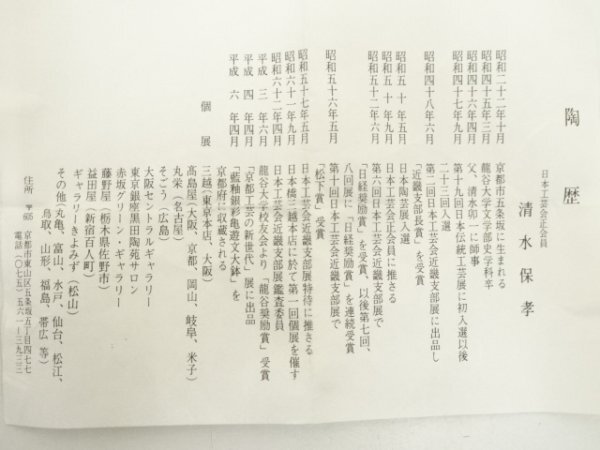 陶歴
日本工芸会正会員
清水保孝
昭和二十二年十月 京都市五条坂に生まれる
昭和四十五年三月 龍谷大学文学部史学科卒
昭和四十六年四月 父、清水卯一に師事
昭和四十七年九月 第十九回日本伝統工芸展に初入選以後
二十三回入選
昭和四十八年六月 第二回日本工芸会近畿支部展に出品し
「近畿支部長賞」を受賞
昭和五十年五月 日本陶芸展入選
昭和五十年九月 日本工芸会正会員に推さる
昭和五十二年六月 第六回日本工芸会近畿支部展で
「日経奨励賞」を受賞、以後第七回、
八回展に「日経奨励賞」を連続受賞
昭和五十六年五月 第十回日本工芸会近畿支部展で
「松下賞」受賞
昭和五十七年五月 日本工芸会近畿支部展特待に推さる
昭和六十一年九月 日本橋三越本店に於て第一回個展を催す
昭和六十二年四月 日本工芸会近畿支部展鑑査委員
平成三年六月 龍谷大学校友会より「龍谷奨励賞」受賞
平成四年四月 「京都工芸の新世代」展に出品
平成六年四月 「藍釉銀彩亀遊文大鉢」を
京都府に収蔵される
個展 三越(東京本店、大阪)
高島屋(大阪、京都、岡山、岐阜、米子)
丸栄(名古屋)
そごう(広島)
大阪セントラルギャラリー
東京銀座黒田陶苑サロン
赤坂グリーン・ギャラリー
藤野屋(栃木県佐野市)
益田屋(新宿百人町)
ギャラリーきよみず(松山)
その他(丸亀、富山、水戸、仙台、松江、
鳥取、山形、福島、帯広 等)
住所 〒605 京都市東山区五条坂五丁目四七七
電話(〇七五)五六一-三九三二